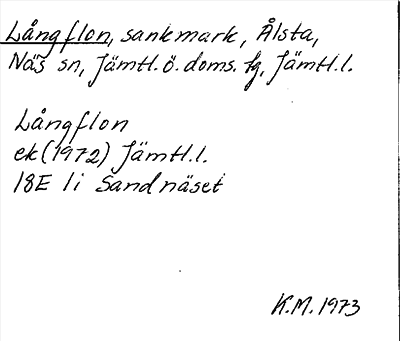 Långflon, sankmark, Ålsta,
Näs sn, Jämtl. ö. doms. fg, Jämtl. l.
Långflon
ek (1972) Jämtl. l.
18E 1i Sandnäset
K.M. 1973